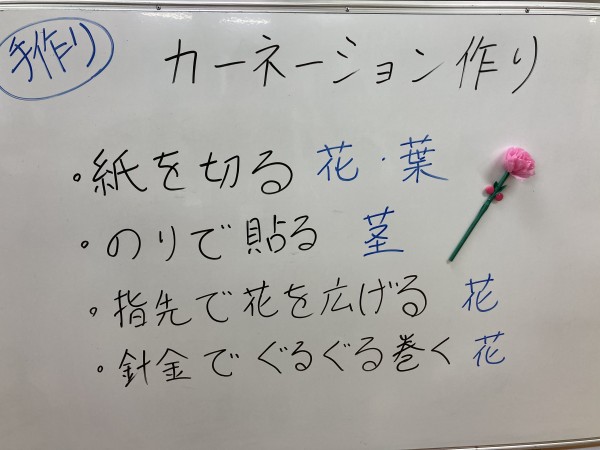 手作り カーネーション作り
・紙を切る 花・葉
・のりで貼る 茎
・指先で花を広げる 花
・針金でぐるぐる巻く 花